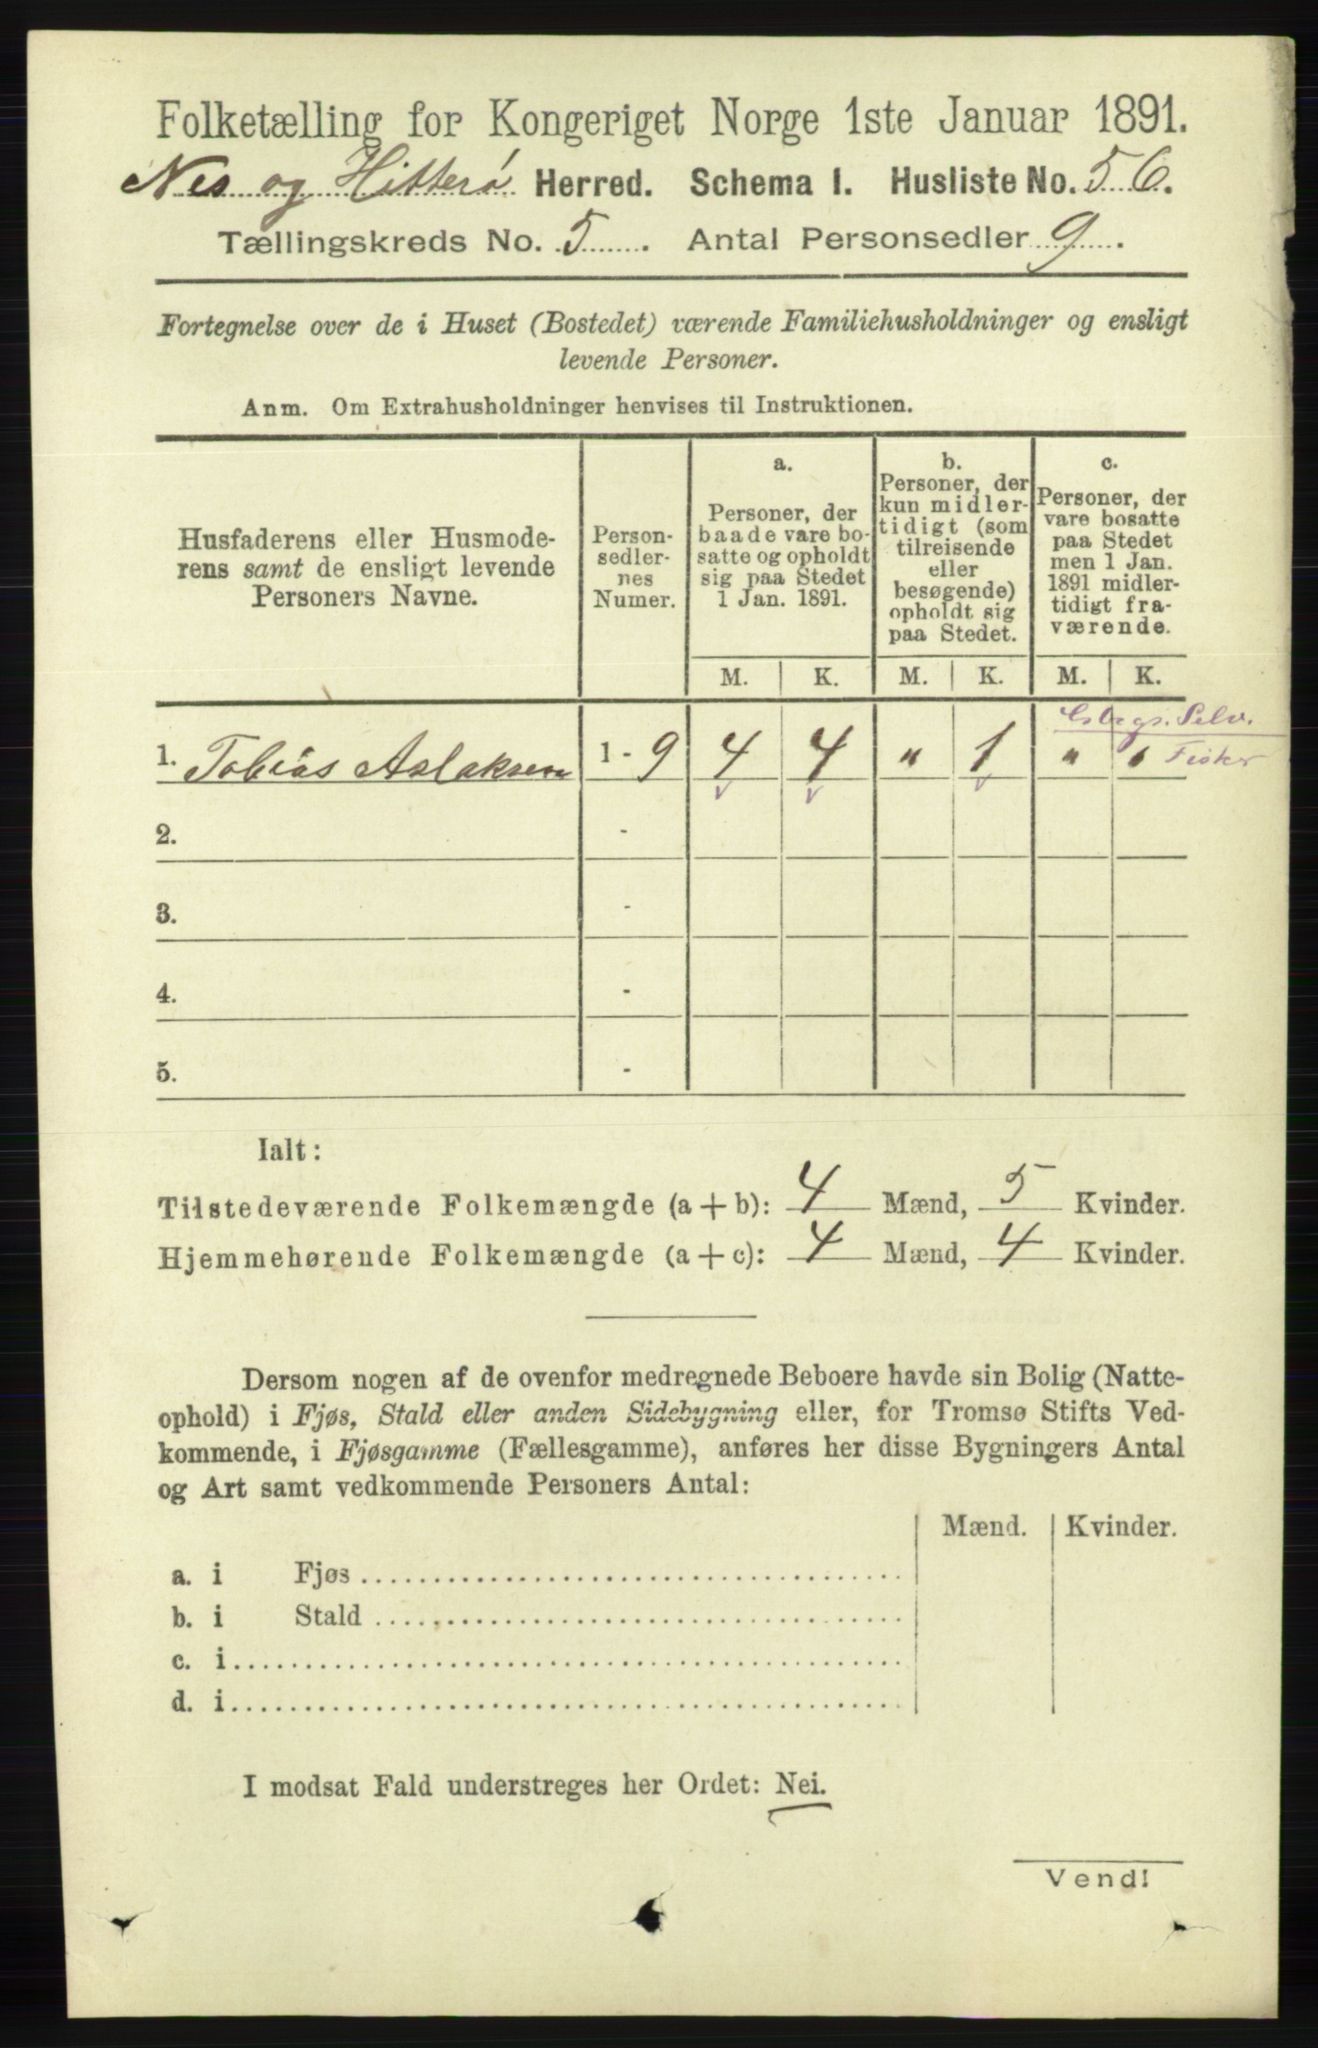 Folketælling for Kongeriget Norge 1ste Januar 1891.
Nes og Hitterø Herred. Schema I. Husliste No. 56.
Tællingskreds No. 5. Antal Personsedler 9.
Fortegnelse over de i Huset (Bostedet) værende Familiehusholdninger og ensligt
levende Personer.
Anm. Om Extrahusholdninger henvises til Instruktionen.
Husfaderens eller Husmode-
rens samt de ensligt levende
Personers Navne.
Person-
sedler-
nes
Numer.
a.
Personer, der
baade vare bo-
satte og opholdt
sig paa Stedet
1 Jan. 1891.
b.
Personer, der
kun midler-
tidigt (som
tilreisende
eller
besøgende)
opholdt sig
paa Stedet.
c.
Personer, der
vare bosatte
paa Stedet
men 1 Jan.
1891 midler-
tidigt fra-
værende.
M. K. M. K. M. K.
Selv.
1. Tobias Aslaksen 1 - 9 4 4 " 1 " " Fisker
2. -
3. -
4. -
5. -
Ialt:
Tilstedeværende Folkemængde (a + b): 4 Mænd, 5 Kvinder.
Hjemmehørende Folkemængde (a + c): 4 Mænd, 4 Kvinder.
Dersom nogen af de ovenfor medregnede Beboere havde sin Bolig (Natte-
ophold) i Fjøs, Stald eller anden Sidebygning eller, for Tromsø Stifts Ved-
kommende, i Fjøsgamme (Fællesgamme), anføres her disse Bygningers Antal
og Art samt vedkommende Personers Antal:
Mænd. Kvinder.
a. i Fjøs
b. i Stald
c. i
d. i
I modsat Fald understreges her Ordet: Nei.
Vend!